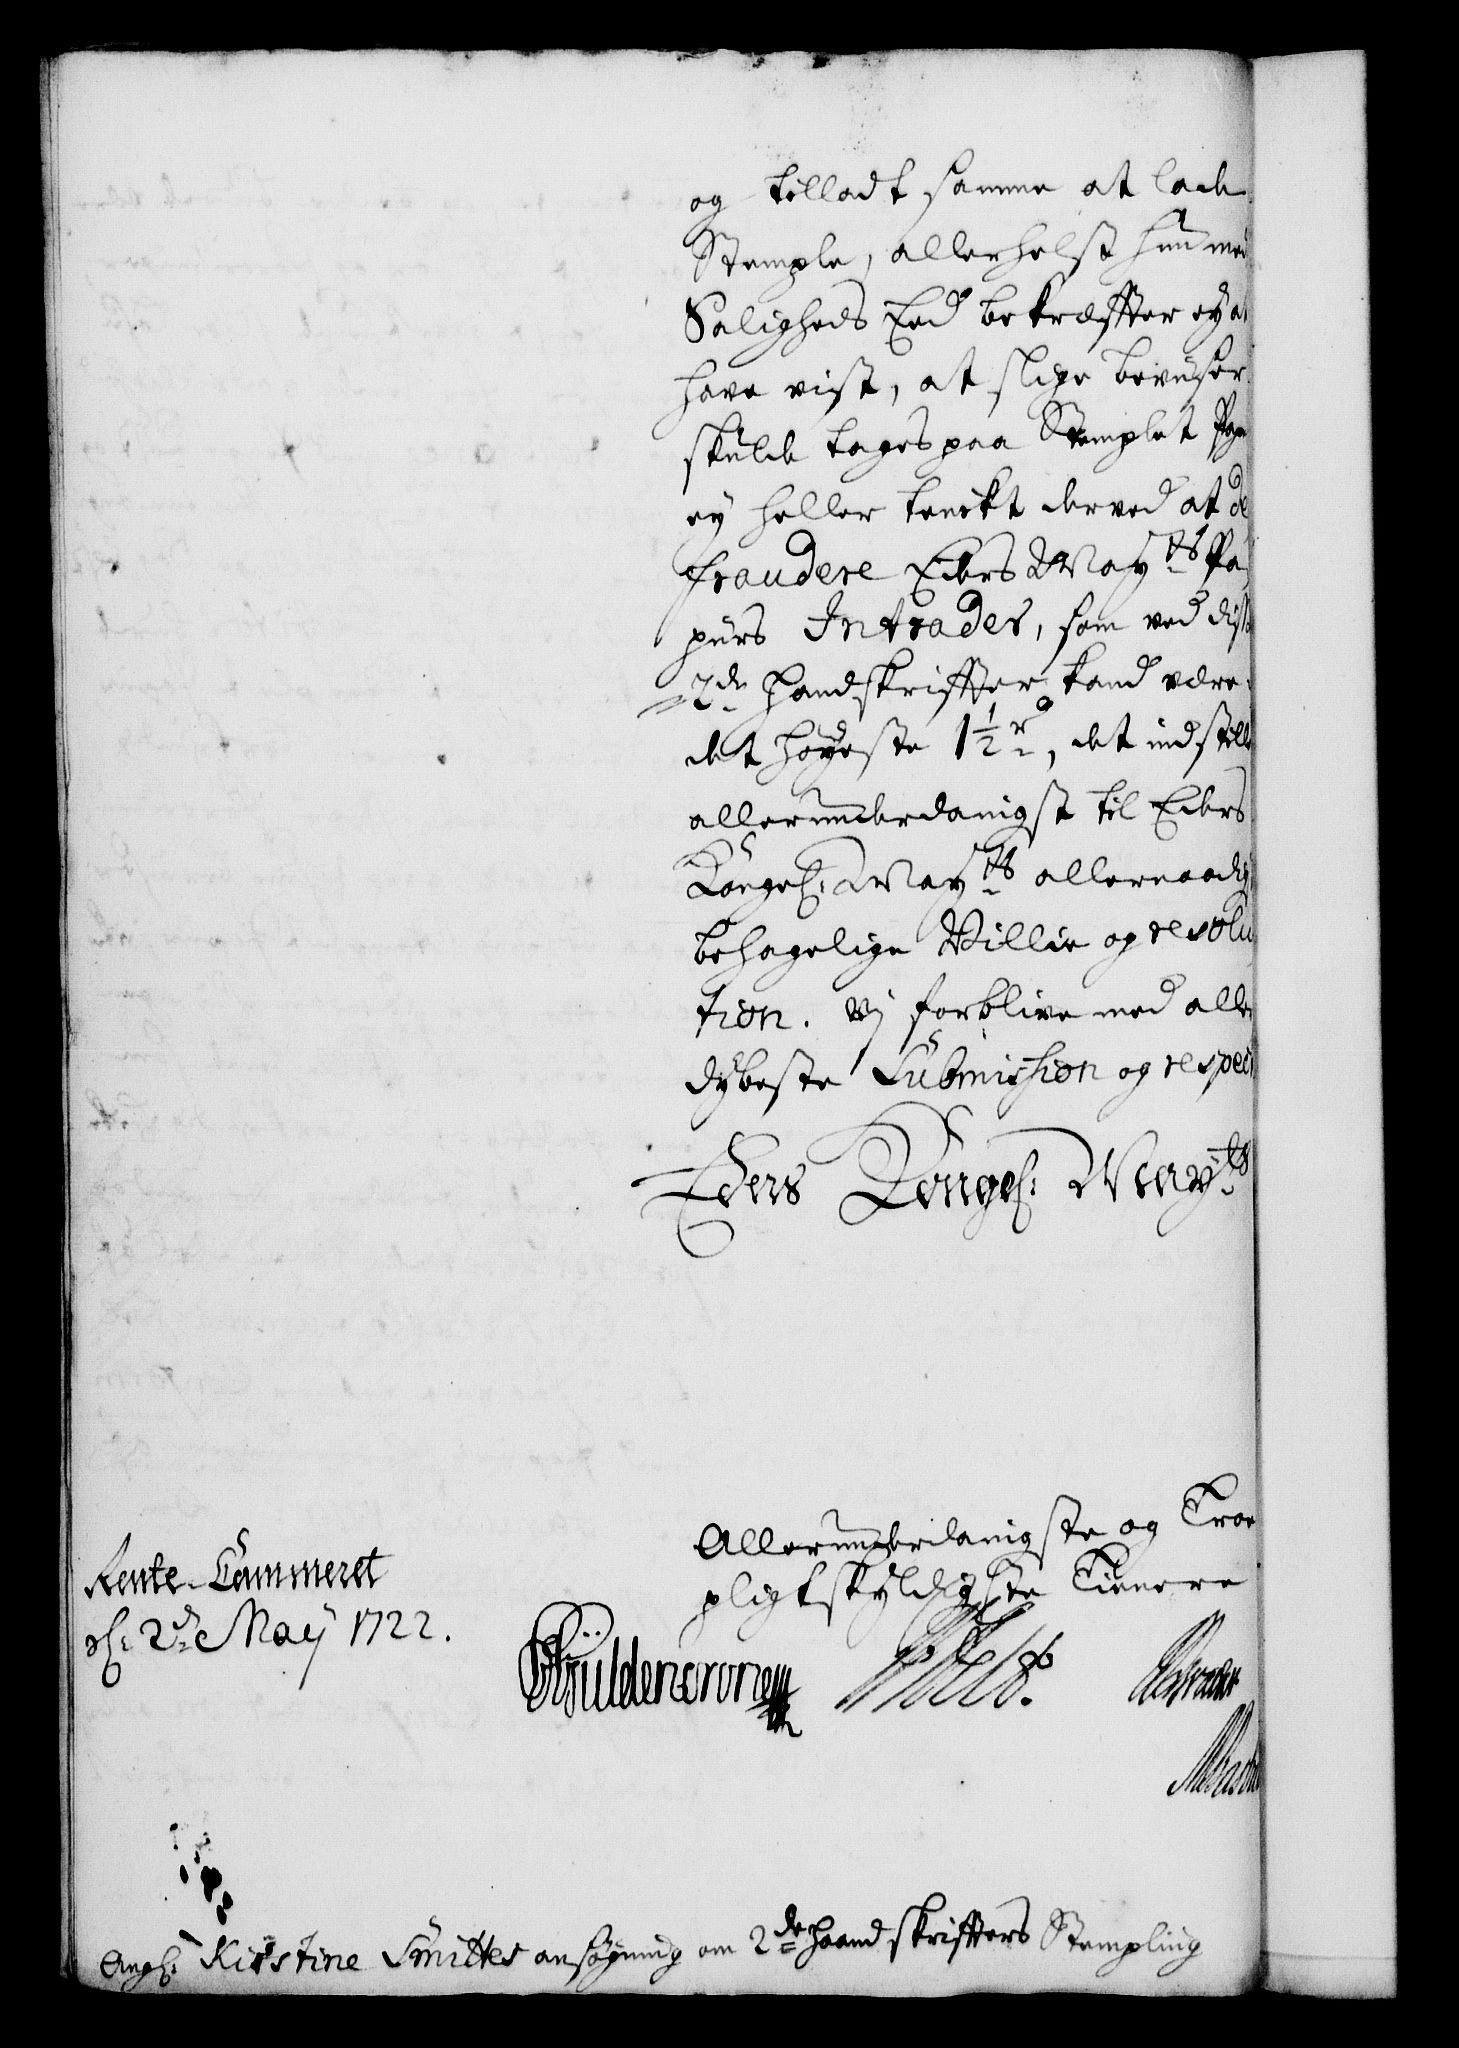 og tilladt samme at lade
Stemple, allerhelst hun med
Saligheds Eed bekræffter ey at
have vist, at slige beviiser
skulde tages paa Stemplet Pap
ey heller tenckt derved at de
fraudere Eders May.ts Pa
piirs Intrader, som ved disse
2de Handskriffter kand være
det høyeste 1½ r, det indstilles
allerunderdanigst til Eders
Kongel: May.ts allernaadig
behagelige Villie og resolu
tion. Vi forblive med aller
dybeste Submission og respect
Eders Kongel: May.ts
Allerunderdanigste og Troe
pligtskyldigste Tienere
Rente-Cammeret
d: 2de May 1722.
Gÿldencrone
Ang: Kirstine Smittes ansøgning om 2de Haandskriffters Stempling